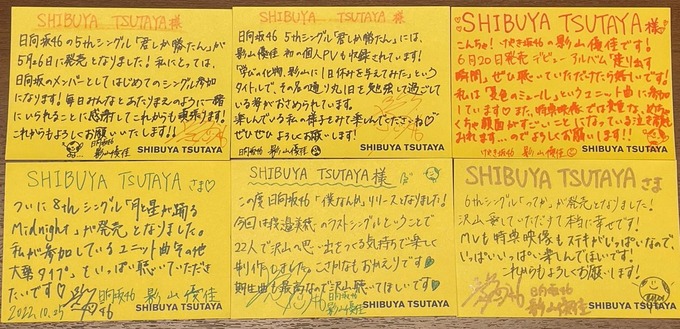 SHIBUYA TSUTAYA 様
日向坂46の5thシングル「君しか勝たん」が
5月26日に発売となりました！私にとっては、
日向坂のメンバーとしてはじめてのシングル参加
になります！毎日みんなとあたりまえのように一緒
にいられることに感謝してこれからも頑張ります！
これからもよろしくお願いいたします!!
日向坂46 影山優佳
SHIBUYA TSUTAYA
SHIBUYA TSUTAYA 様
日向坂46 5thシングル「君しか勝たん」には、
影山優佳 初の個人PVも収録されています！
「学びの化物、影山に1日休みを与えてみた」という
タイトルで、その名の通り丸1日を勉強して過ごして
いる姿がおさめられています。
楽しんでいる私の様子をみて楽しんでくださいね♡
ぜひぜひよろしくお願いします！
日向坂46 影山優佳
SHIBUYA TSUTAYA
SHIBUYA TSUTAYA 様
こんちゃ！けやき坂46の影山優佳です！
6月20日発売デビューアルバム「走り出す
瞬間」ぜひ聴いていただけたら嬉しいです！
私は「夏色のミュール」というユニット曲に参加
しています♡また、特典映像では
顔面がすごいことになっている
のでよろしくお願いします!!
けやき坂46 影山優佳
SHIBUYA TSUTAYA
SHIBUYA TSUTAYA さま♡
ついに8thシングル「月と星が踊る
Midnight」が発売となりました。
私が参加しているユニット曲その他
大量タイプ、もいっぱい聴いていただき
たいです♡
2022.10.25
日向坂46 影山優佳
SHIBUYA TSUTAYA
SHIBUYA TSUTAYA 様
この度日向坂46「僕なん」リリースとなりました！
今回は渡邉美穂のラストシングルということで
22人で沢山の思い出をつくる気持ちで楽しく
制作しました。こさかなもおかえりです
期生曲も最高なので沢山聴いてほしいです
日向坂46 影山優佳
SHIBUYA TSUTAYA
SHIBUYA TSUTAYA さま
6thシングル「ってか」が発売となりました！
沢山愛していただけて本当に幸せです！
MVも特典映像もステキがいっぱいなので、
いっぱいいっぱい楽しんでほしいです！
これからもよろしくお願いします！
日向坂46
影山優佳
SHIBUYA TSUTAYA